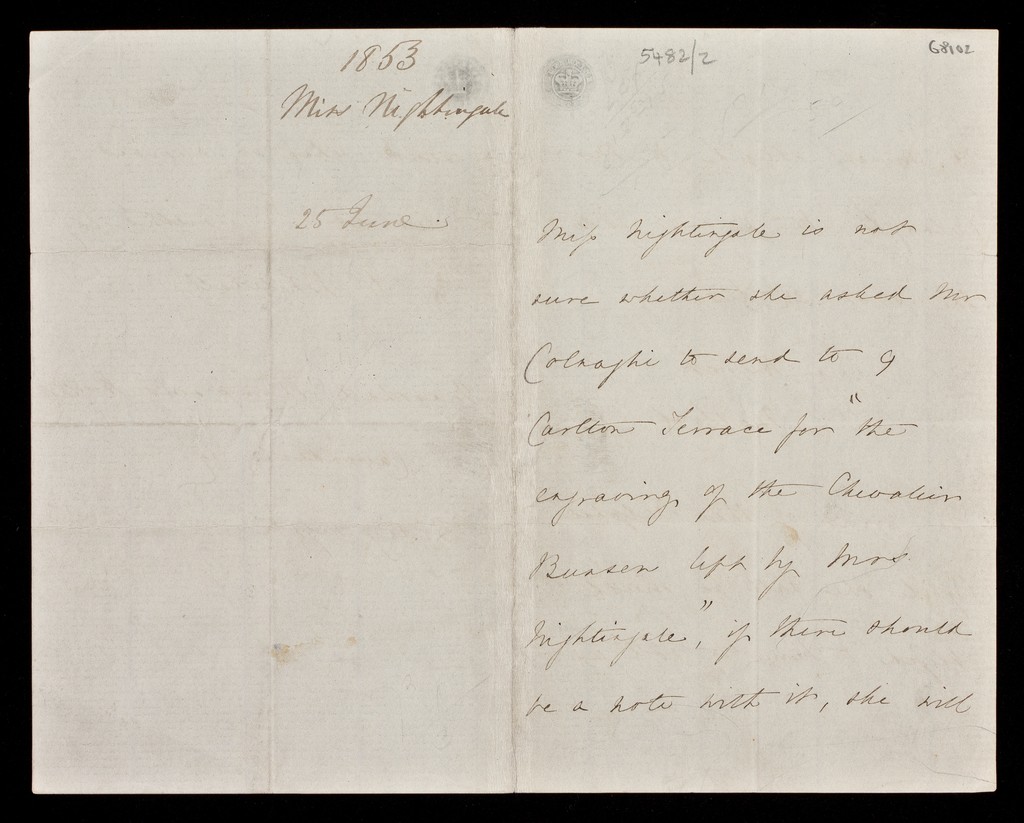 1853
Miss Nightingale
25 June
5482/2
G8102
Miss Nightingale is not
sure whether she asked Mr
Colnaghi to send to 9
Carlton Terrace for "the
engraving of the Chevalier
Bunsen left by Mrs
Nightingale", if there should
be a note with it, she will